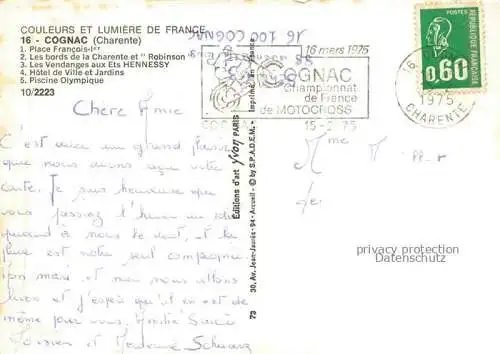 COULEURS ET LUMIÈRE DE FRANCE
16 - COGNAC (Charente)
1. Place François-Ier
2. Les bords de la Charente et " Robinson "
3. Les Vendanges aux Ets HENNESSY
4. Hôtel de Ville et Jardins
5. Piscine Olympique
10/2223
16 100 COGNAC
16 mars 1975
COGNAC
Championnat
de France
de MOTOCROSS
15-3 75
POSTES
0,60
16
1975
CHARENTE
Chère Amie
C'est avec un grand plaisir
que nous avons reçu votre
carte. Je suis heureuse que
vous passiez l'hiver au
quand à nous le vent, et la
pluie est notre seul compagnie.
Mon mari et moi nous allons
bien et j'espère qu'il en est de
même pour vous. Amitié
et Madame Schwarz
Mme
Editions d'art Yvon PARIS
Imprimé en France
30, Av. Jean-Jaurès-94-Arcueil - © by S.P.A.D.E.M.
73
copyright protection
Datenschutz